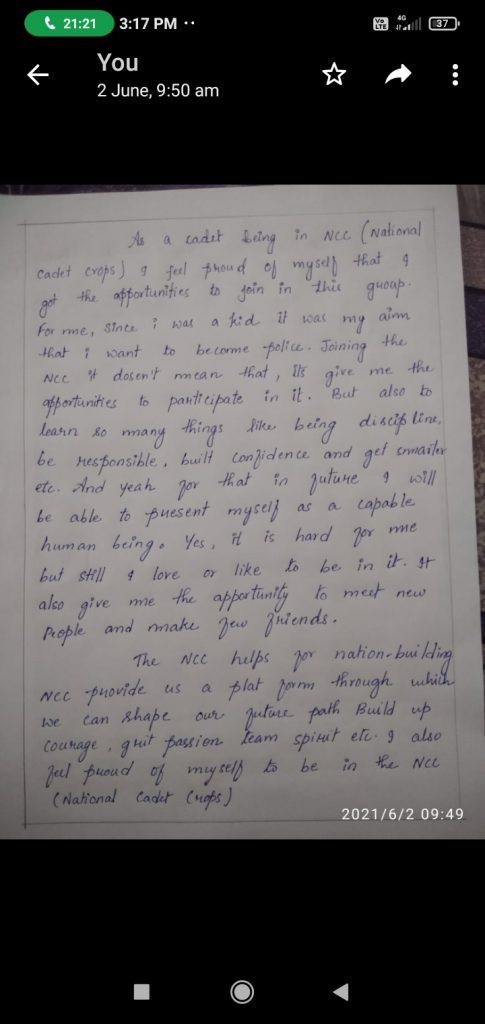 21:21 3:17 PM ··
Vo LTE 4G 37
You
2 June, 9:50 am
As a cadet being in NCC (National
Cadet crops) I feel proud of myself that I
got the opportunities to join in this group.
For me, since i was a kid it was my aim
that i want to become police. Joining the
NCC it dosen't mean that, its give me the
opportunities to participate in it. But also to
learn so many things like being discipline,
be responsible, built confidence and get smarter
etc. And yeah for that in future I will
be able to present myself as a capable
human being. Yes, it is hard for me
but still I love or like to be in it. It
also give me the apportunity to meet new
People and make few friends.
The NCC helps for nation-building
NCC provide us a plat form through which
we can shape our future path Build up
courage, grit passion team spirit etc. I also
feel proud of myself to be in the NCC
(National Cadet Crops)
2021/6/2 09:49